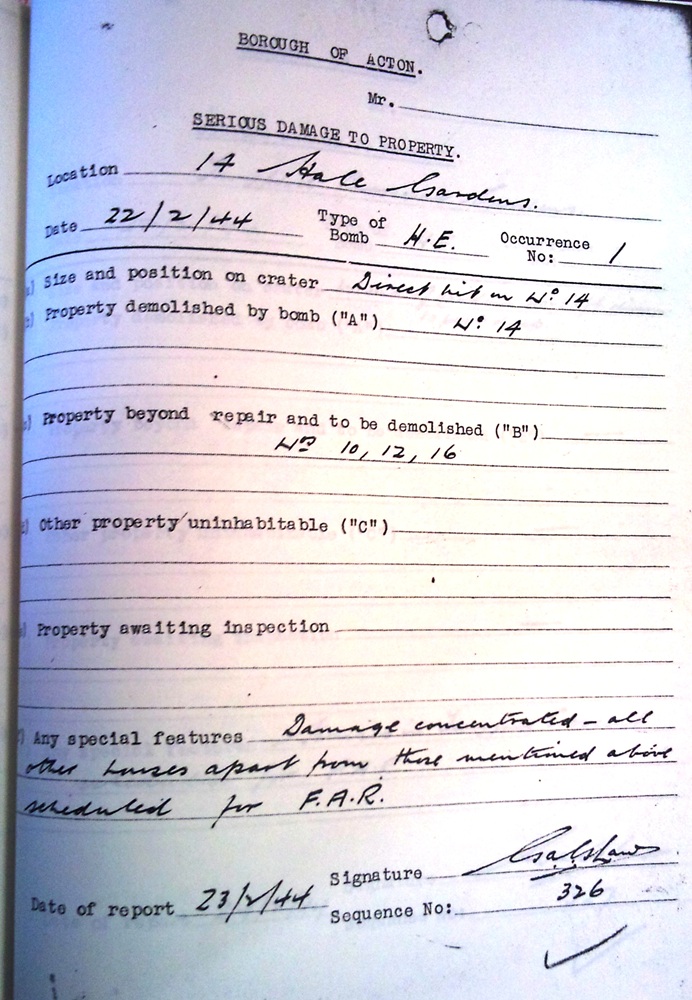 BOROUGH OF ACTON.
Mr.
SERIOUS DAMAGE TO PROPERTY.
Location 14 Hale Gardens.
Date 22/2/44 Type of Bomb H.E. Occurrence No: 1
) Size and position on crater Direct hit on No 14
) Property demolished by bomb ("A") No 14
) Property beyond repair and to be demolished ("B")
Nos 10, 12, 16
) Other property uninhabitable ("C")
) Property awaiting inspection
) Any special features Damage concentrated - all
other houses apart from those mentioned above
scheduled for F.A.R.
Signature
Date of report 23/2/44 Sequence No: 326